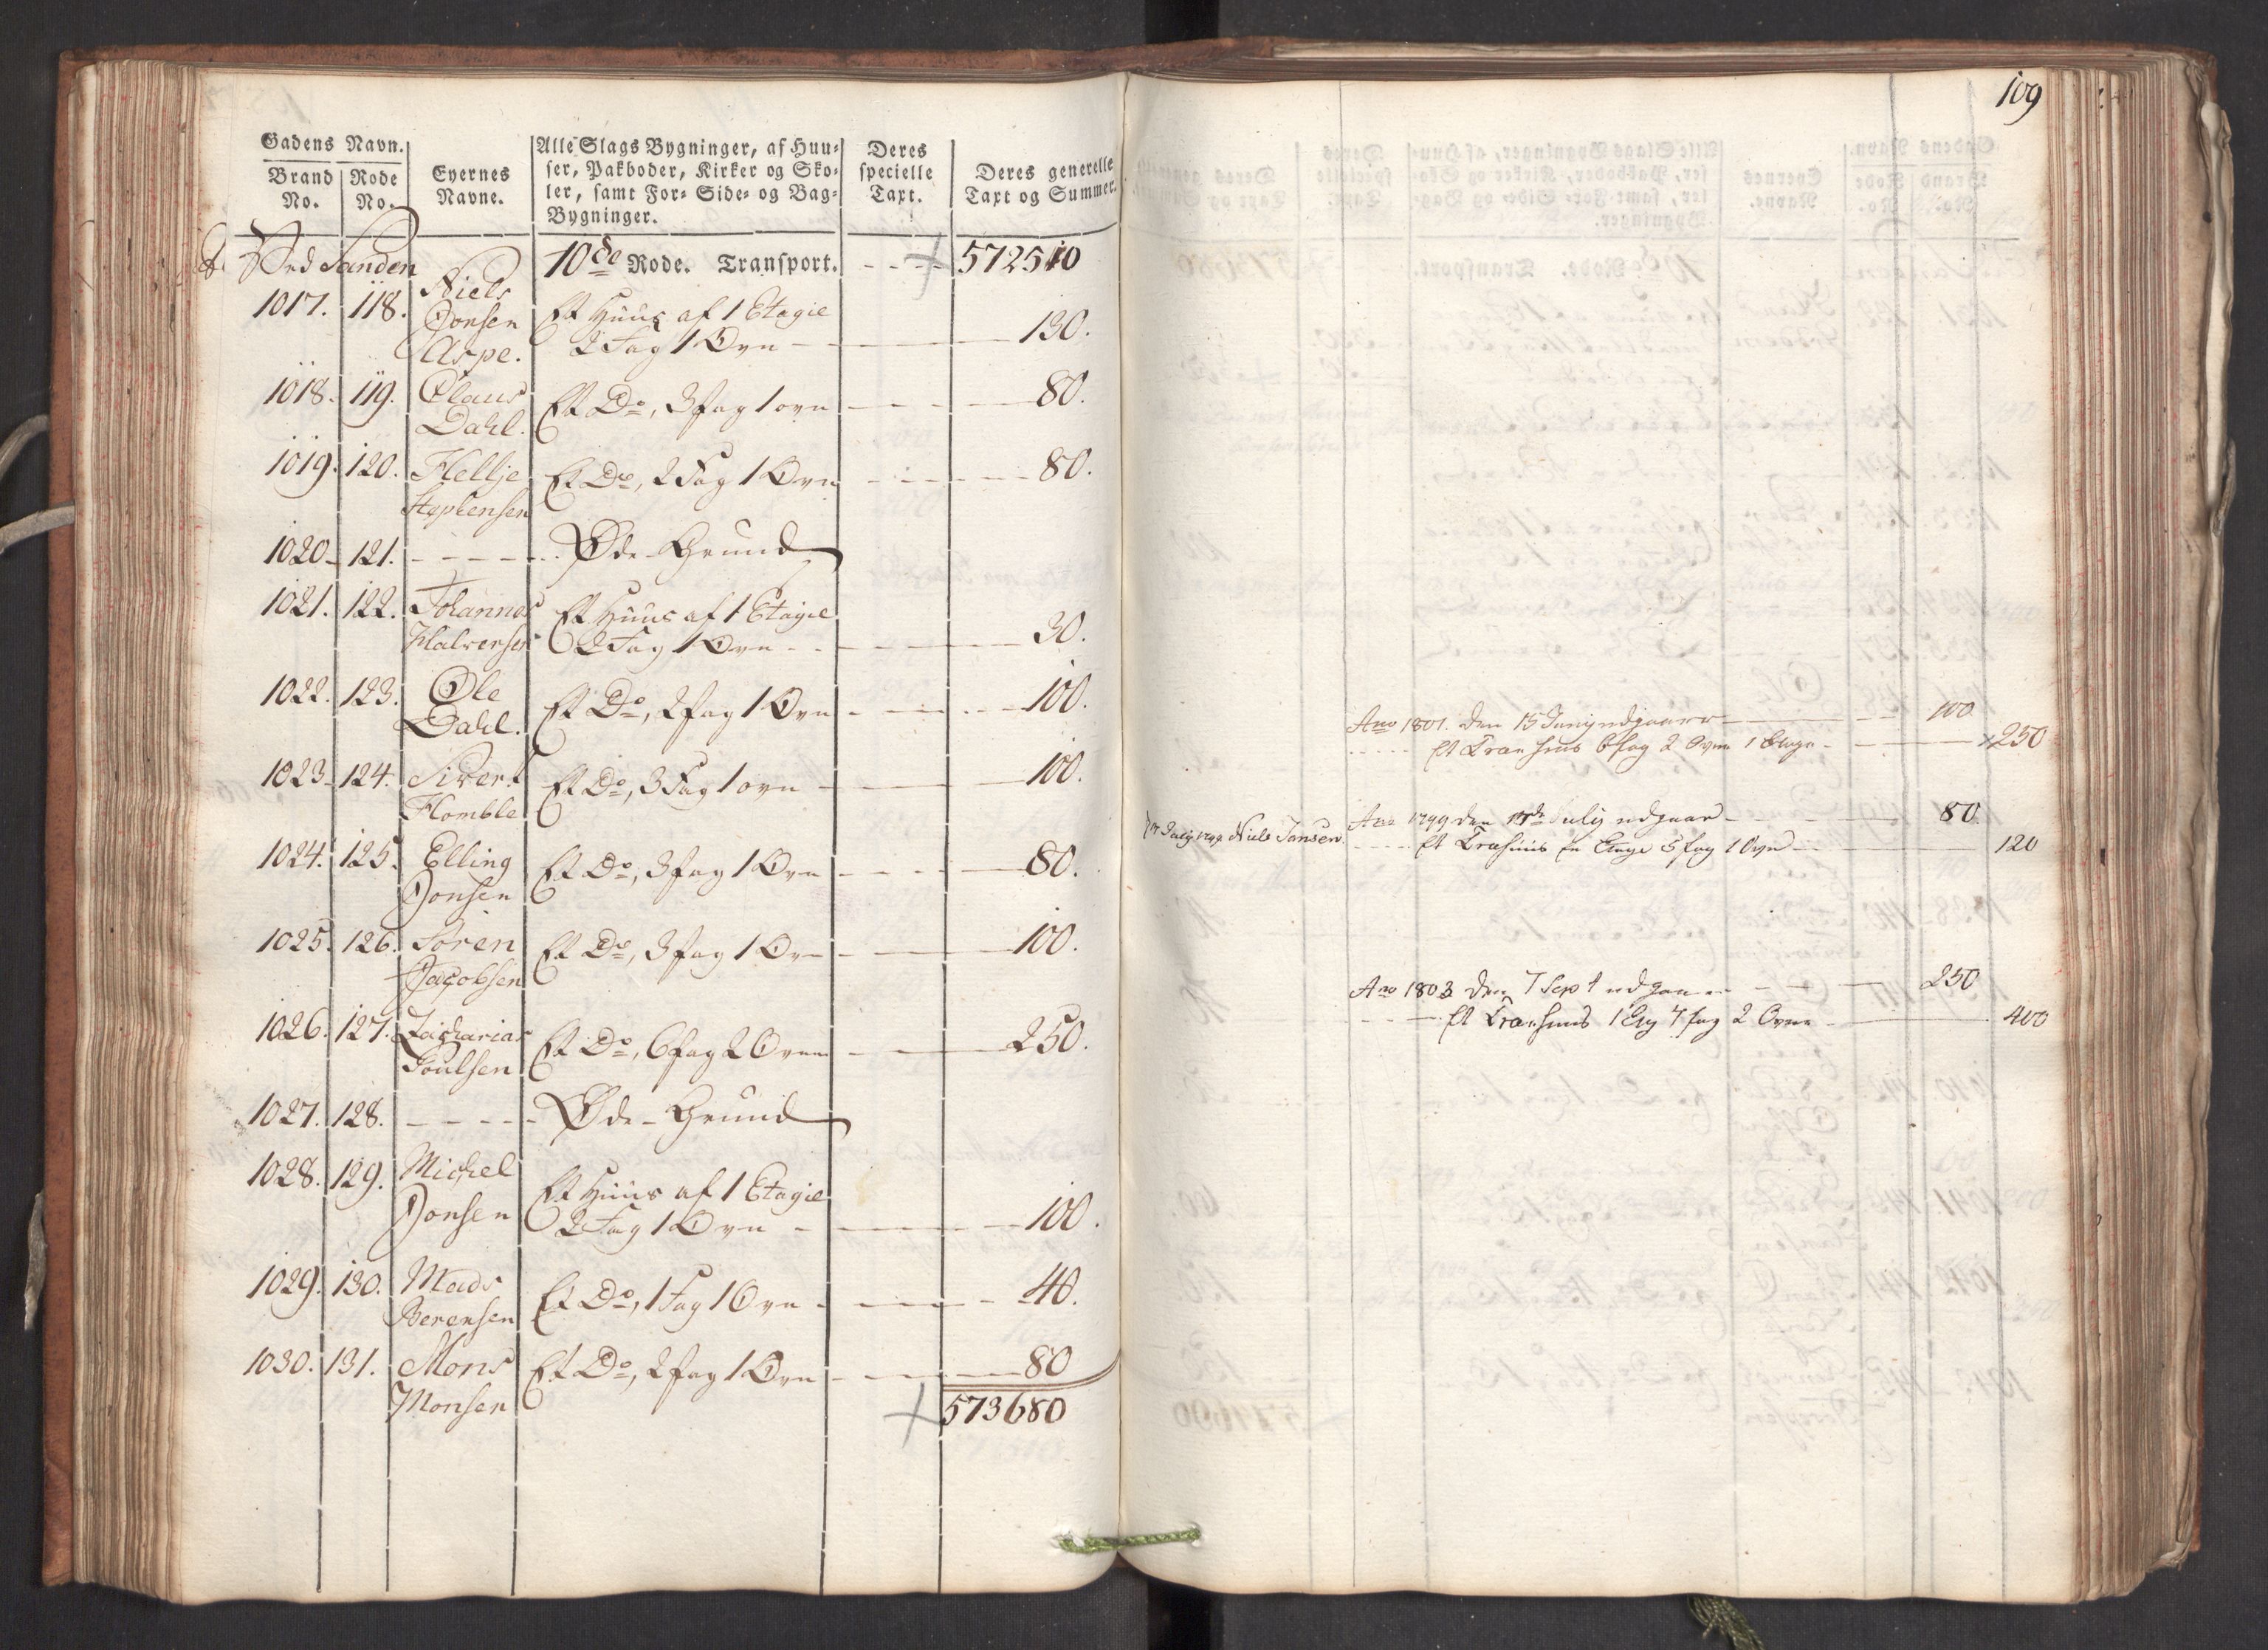 Gadens Navn.
Brand No. Rode No.
Eyernes Navne.
Alle Slags Bygninger, af Huu-
ser, Pakboder, Kirker og Sko-
ler, samt For- Side- og Bag-
Bygninger.
Deres specielle Taxt.
Deres generelle Taxt og Summer.
Ved Sanden 10de Rode. Transport. 572510
1017. 118. Niels Jonsen Aspe. Et Huus af 1 Etagie
2 Fag 1 Ovn 130.
1018. 119. Claus Dahl. Et Do, 3 fag 1 ovn 80.
1019. 120. Hellje Stephensen Et Do, 2 Fag 1 Ovn 80.
1020 121. Øde Grund
1021. 122. Johannes Halvorsen Et Huus af 1 Etagie
2 Fag 1 Ovn 30.
1022. 123. Ole Dahl. Et Do, 2 fag 1 Ovn 100.
1023 124. Sivert Homble Et Do, 3 Fag 1 ovn 100.
1024. 125. Elling Jonsen Et Do, 3 fag 1 Ovn 80.
1025. 126. Søren Jacobsen Et Do, 3 fag 1 Ovn 100.
1026. 127. Zacharias Poulsen Et Do, 6 fag 2 Ovne 250.
1027. 128. Øde Grund
1028. 129. Michel Jonsen Et Huus af 1 Etagie
2 Fag 1 Ovn 100.
1029. 130. Mads Berensen Et Do, 1 Fag 1 Ovn 40.
1030. 131. Mons Monsen Et Do, 2 fag 1 Ovn 80
573680
109
Ano 1801. den 15 Juny udgaaer 100
Et Træehuus 6 fag 2 Ovne 1 Etage 250
17 July 1799 Niels Jansen. Ano 1799 den 17de July udgaar 80
Et Træhuus en Etage 5 fag 1 Ovn 120
Ano 1803 den 7 Sept udgaar 250
Et Træehuus 1 Etg 7 fag 2 Ovne 400